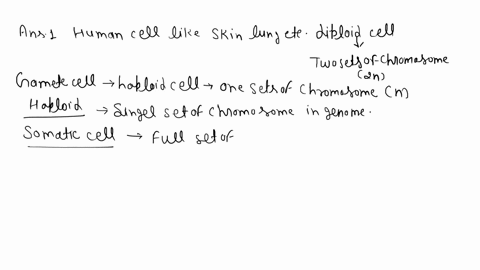 Ans.1 Human cell like skin lung etc. diploid cell
Two sets of chromasome
(2n)
Gamete cell → haploid cell → one sets of chromasome (n)
Haploid → Singel set of chromosome in genome.
Somatic cell → Full set of